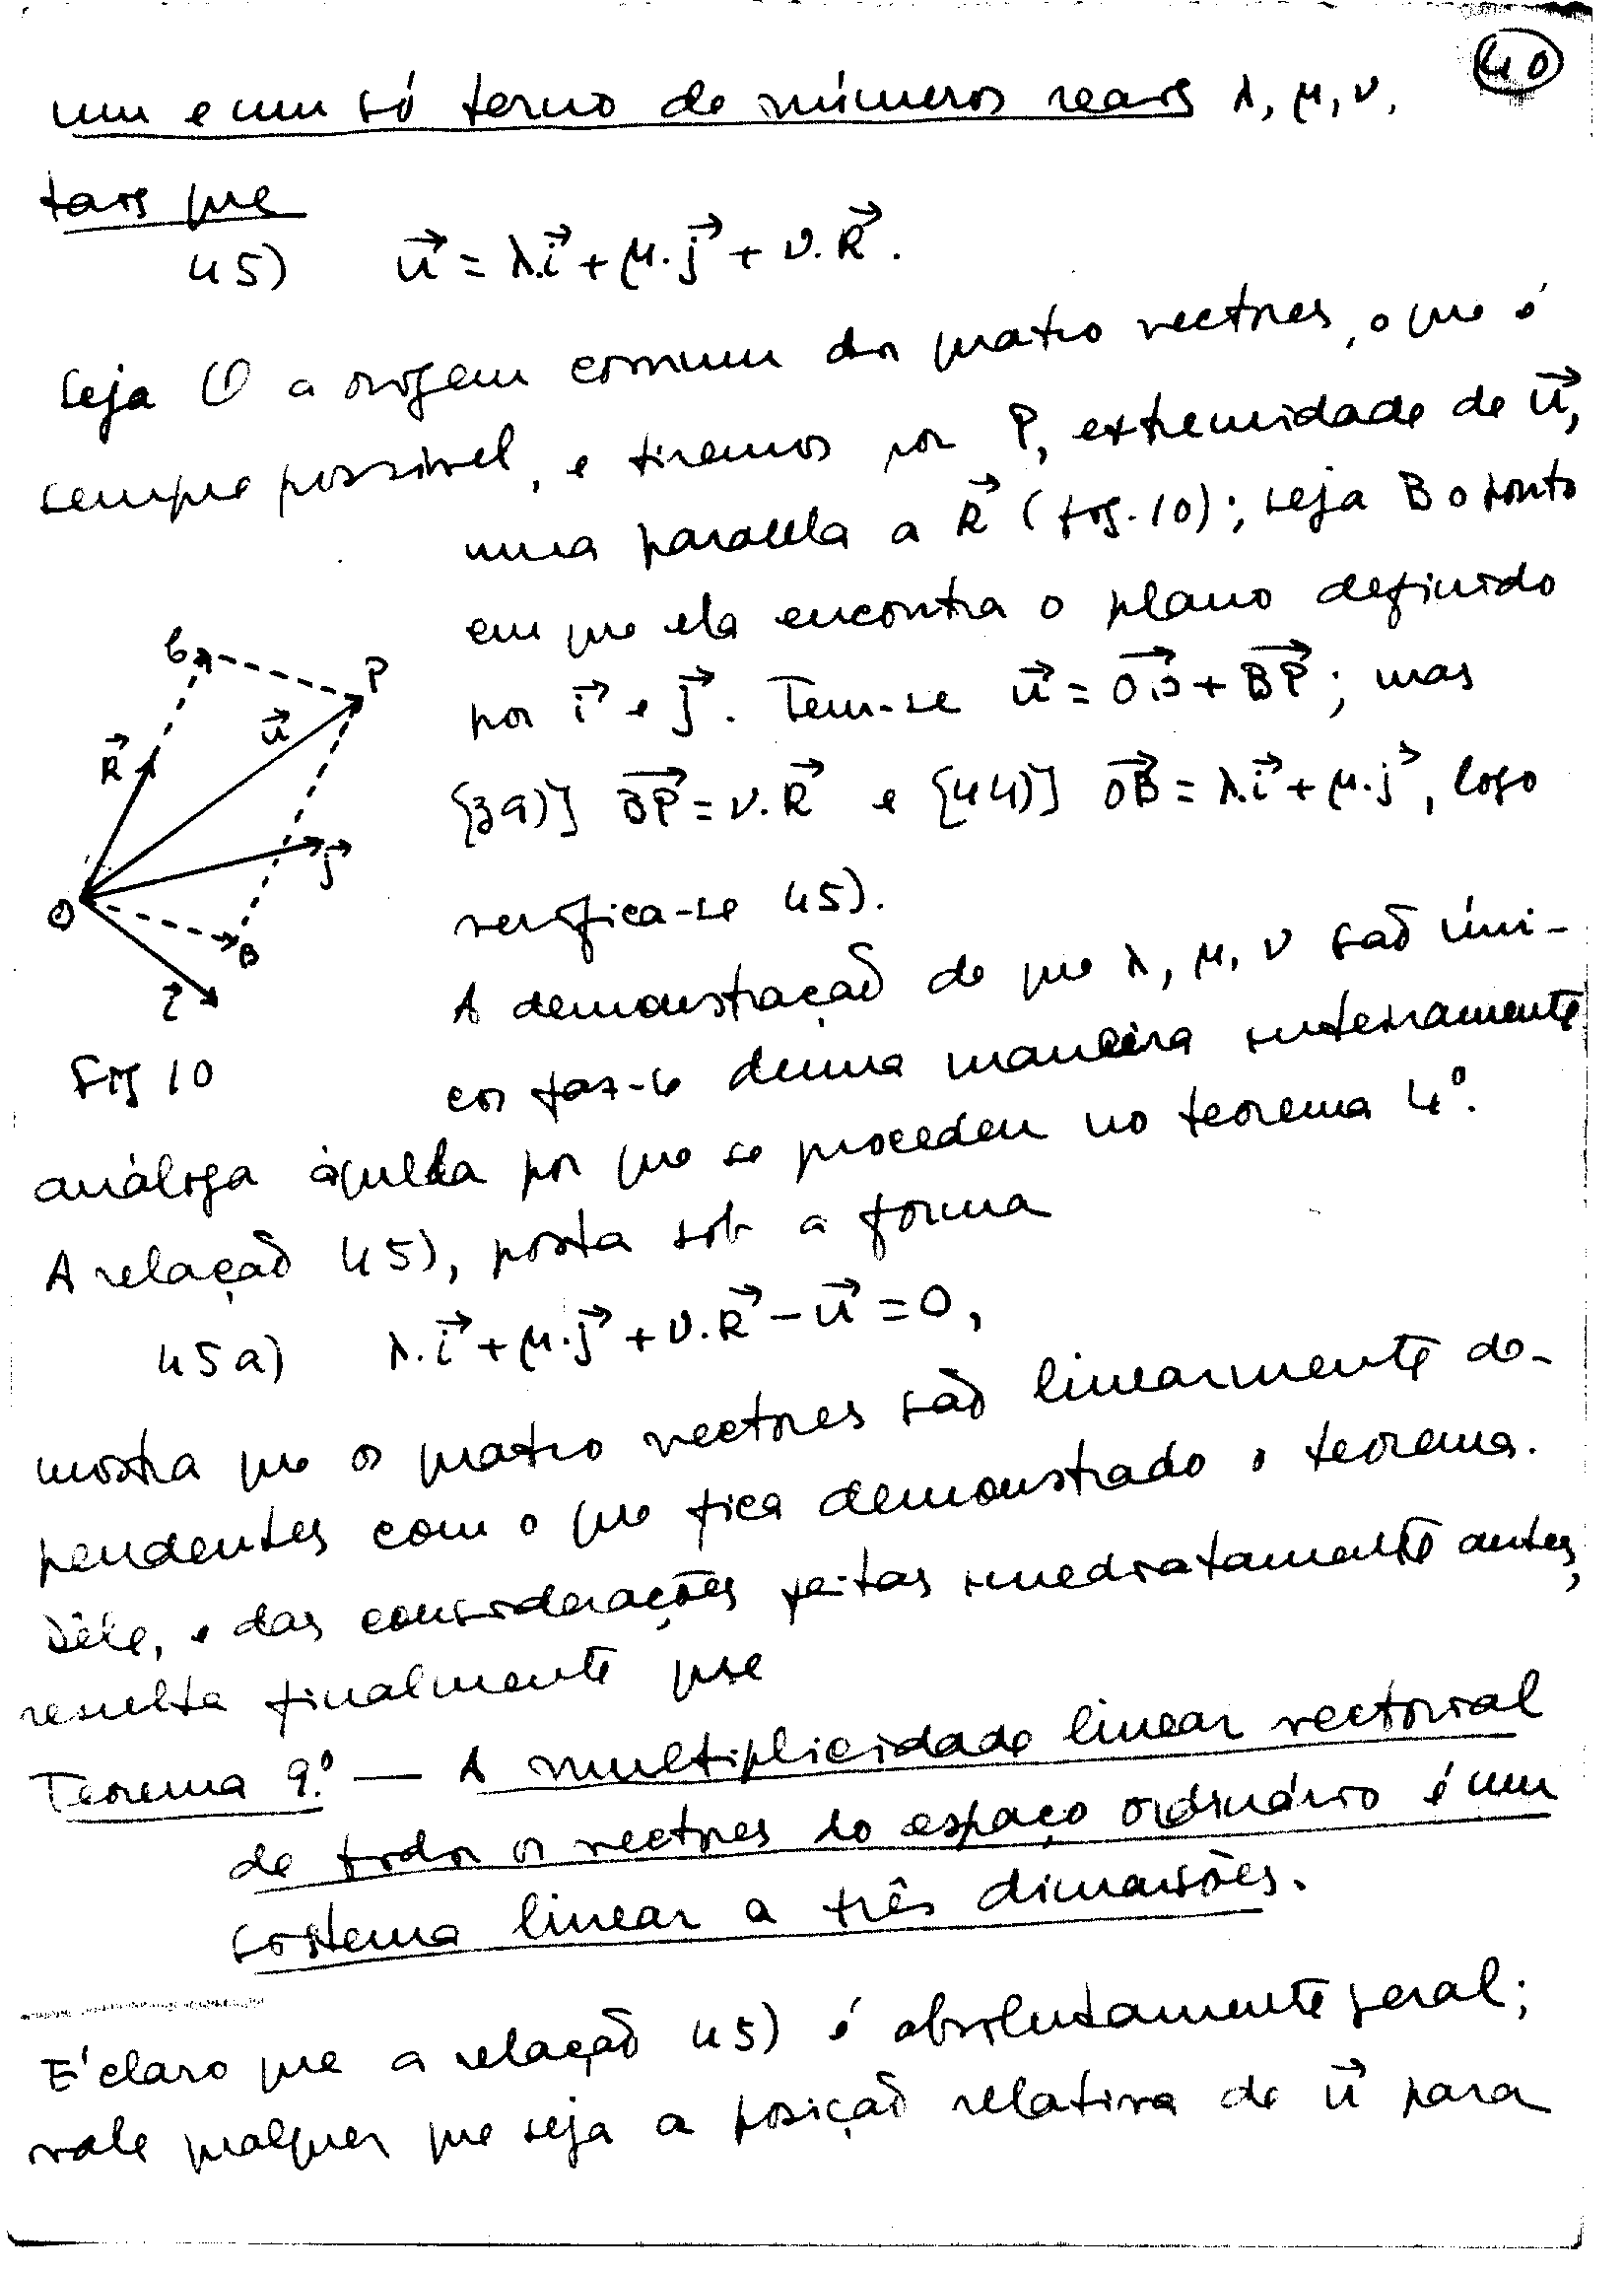 40
um e um só terno de números reais λ, μ, ν,
tais que
45) u⃗ = λ.i⃗ + μ.j⃗ + ν.k⃗.
Seja O a origem comum dos quatro vectores, o que é
sempre possível, e tiremos por P, extremidade de u⃗,
uma paralela a k⃗ (fig. 10); seja B o ponto
em que ela encontra o plano definido
por i⃗ e j⃗. Tem-se u⃗ = OB⃗ + BP⃗; mas
[39)] BP⃗ = ν.k⃗ e [44)] OB⃗ = λ.i⃗ + μ.j⃗, logo
verifica-se 45).
C
P
u⃗
k⃗
j⃗
O
B
i⃗
Fig 10
A demonstração de que λ, μ, ν são úni-
cos faz-se duma maneira inteiramente
análoga àquela por que se procedeu no teorema 4º.
A relação 45), posta sob a forma
45a) λ.i⃗ + μ.j⃗ + ν.k⃗ - u⃗ = 0,
mostra que os quatro vectores são linearmente de-
pendentes com o que fica demonstrado o teorema.
Dêle, e das considerações feitas imediatamente antes,
resulta finalmente que
Teorema 9.º — A multiplicidade linear vectorial
de todos os vectores do espaço ordinário é um
sistema linear a três dimensões.
É claro que a relação 45) é absolutamente geral;
vale qualquer que seja a posição relativa de u⃗ para